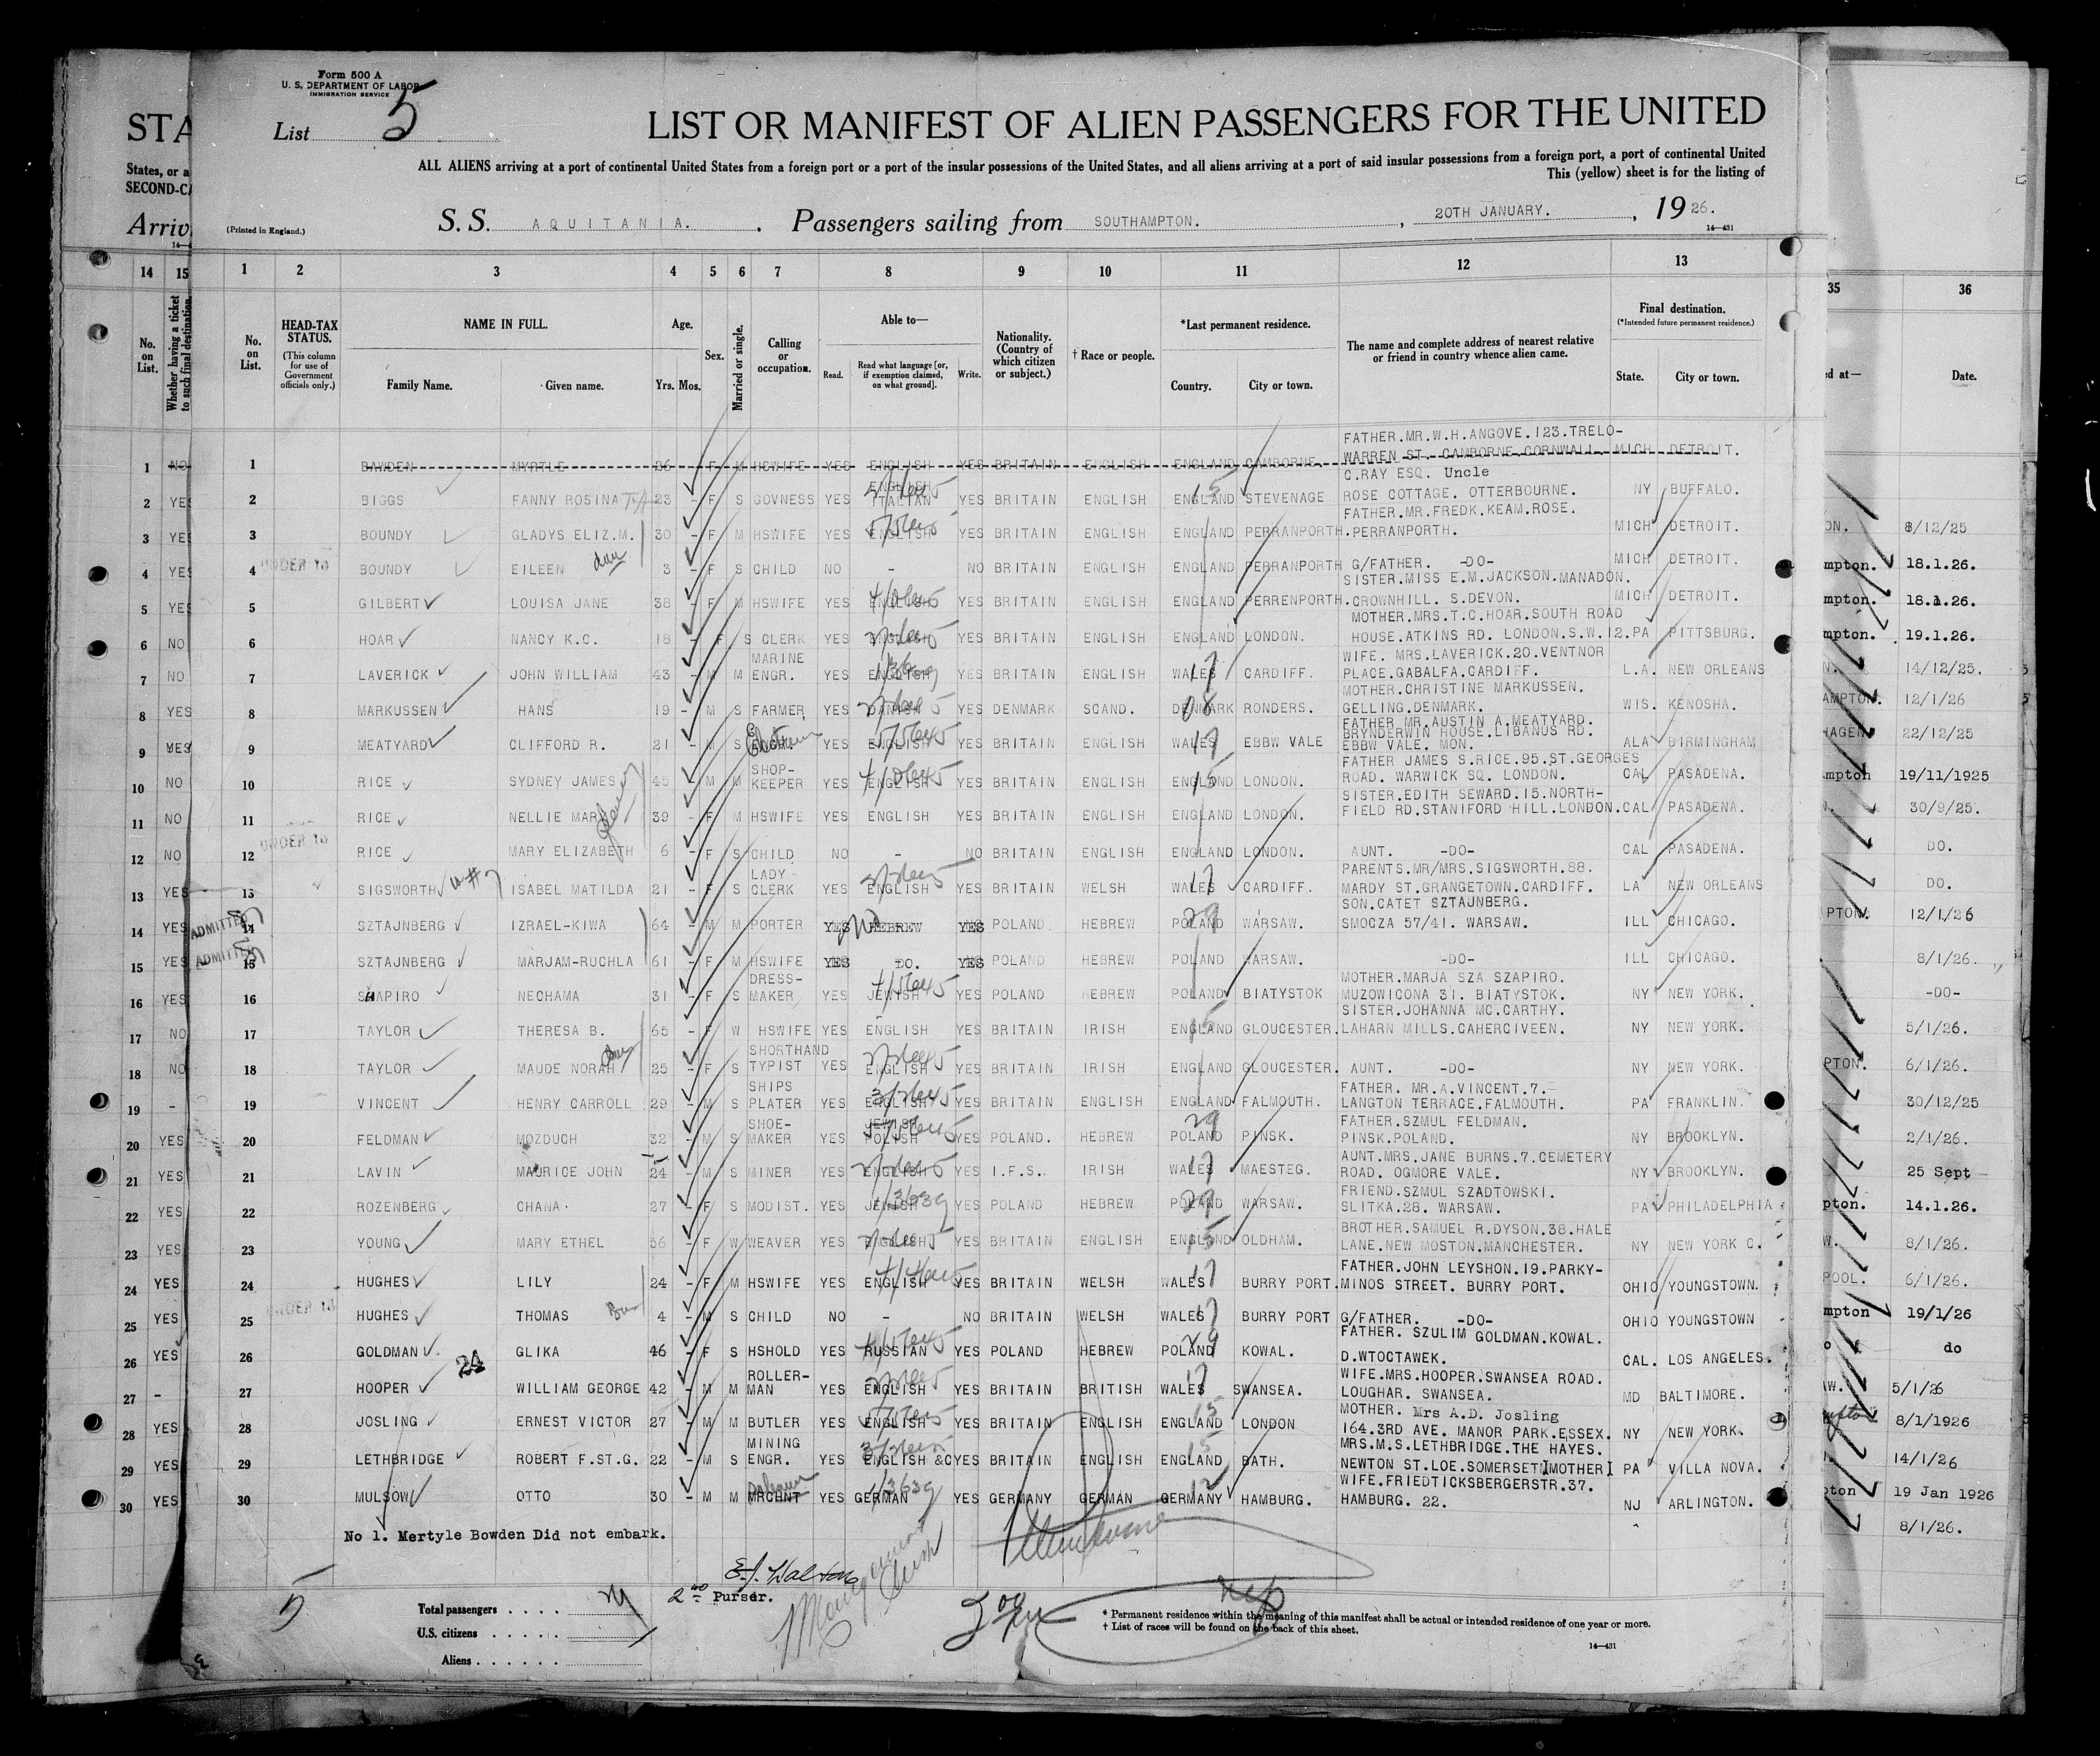 Form 500 A
U. S. DEPARTMENT OF LABOR
IMMIGRATION SERVICE
List 5
LIST OR MANIFEST OF ALIEN PASSENGERS FOR THE UNITED
ALL ALIENS arriving at a port of continental United States from a foreign port or a port of the insular possessions of the United States, and all aliens arriving at a port of said insular possessions from a foreign port, a port of continental United
This (yellow) sheet is for the listing of
STA
States, or a
SECOND-CA
Arriv
(Printed in England.)
S. S. AQUITANIA. Passengers sailing from SOUTHAMPTON. , 20TH JANUARY. , 1926.
14—431
14 15 1 2 3 4 5 6 7 8 9 10 11 12 13 35 36
No. on List.
Whether having a ticket to such final destination.
No. on List.
HEAD-TAX STATUS.
(This column for use of Government officials only.)
NAME IN FULL.
Family Name. Given name.
Age.
Yrs. Mos.
Sex.
Married or single.
Calling or occupation.
Able to—
Read. Read what language [or, if exemption claimed, on what ground]. Write.
Nationality. (Country of which citizen or subject.)
† Race or people.
*Last permanent residence.
Country. City or town.
The name and complete address of nearest relative or friend in country whence alien came.
Final destination.
(*Intended future permanent residence.)
State. City or town.
ed at— Date.
FATHER.MR.W.H.ANGOVE.123.TRELO-
1 NO 1 BAWDEN MYRTLE 26 - F M HSWIFE YES ENGLISH YES BRITAIN ENGLISH ENGLAND CAMBORNE. WARREN ST. CAMBORNE CORNWALL MICH DETROIT.
ENGLISH C.RAY ESQ. Uncle
2 YES 2 BIGGS FANNY ROSINA 23 - F S GOVNESS YES ITALIAN YES BRITAIN ENGLISH ENGLAND STEVENAGE ROSE COTTAGE. OTTERBOURNE. NY BUFFALO.
FATHER.MR.FREDK.KEAM.ROSE.
3 YES 3 BOUNDY GLADYS ELIZ.M. 30 - F M HSWIFE YES ENGLISH YES BRITAIN ENGLISH ENGLAND PERRANPORTH. PERRANPORTH. MICH DETROIT. 8/12/25
4 YES UNDER 16 4 BOUNDY EILEEN dau 3 - F S CHILD NO - NO BRITAIN ENGLISH ENGLAND PERRANPORTH G/FATHER. -DO- MICH DETROIT. mpton. 18.1.26.
SISTER.MISS E.M.JACKSON.MANADON.
5 YES 5 GILBERT LOUISA JANE 38 - F M HSWIFE YES ENGLISH YES BRITAIN ENGLISH ENGLAND PERRENPORTH. CROWNHILL. S.DEVON. MICH DETROIT. mpton. 18.1.26.
MOTHER.MRS.T.C.HOAR.SOUTH ROAD
6 NO 6 HOAR NANCY K.C. 18 - F S CLERK YES ENGLISH YES BRITAIN ENGLISH ENGLAND LONDON. HOUSE.ATKINS RD. LONDON.S.W.12. PA PITTSBURG. mpton. 19.1.26.
MARINE WIFE. MRS.LAVERICK.20.VENTNOR
7 NO 7 LAVERICK JOHN WILLIAM 43 - M M ENGR. YES ENGLISH YES BRITAIN ENGLISH WALES CARDIFF. PLACE.GABALFA.CARDIFF. L.A. NEW ORLEANS 14/12/25.
MOTHER.CHRISTINE MARKUSSEN.
8 YES 8 MARKUSSEN HANS 19 - M S FARMER YES DANISH YES DENMARK SCAND. DENMARK RONDERS. GELLING.DENMARK. WIS. KENOSHA. AMPTON. 12/1/26
FATHER MR.AUSTIN A.MEATYARD.
BRYNDERWIN HOUSE.LIBANUS RD.
9 YES 9 MEATYARD CLIFFORD R. 21 - M S ENGR. YES ENGLISH YES BRITAIN ENGLISH WALES EBBW VALE EBBW VALE. MON. ALA BIRMINGHAM HAGEN 22/12/25
SHOP- FATHER JAMES S.RICE.95.ST.GEORGES
10 NO 10 RICE SYDNEY JAMES 45 - M M KEEPER YES ENGLISH YES BRITAIN ENGLISH ENGLAND LONDON. ROAD. WARWICK SQ. LONDON. CAL PASADENA. mpton 19/11/1925
SISTER.EDITH SEWARD.15.NORTH-
11 NO 11 RICE NELLIE MARY 39 - F M HSWIFE YES ENGLISH YES BRITAIN ENGLISH ENGLAND LONDON. FIELD RD.STANIFORD HILL.LONDON. CAL PASADENA. 30/9/25.
12 NO UNDER 16 12 RICE MARY ELIZABETH 6 - F S CHILD NO - NO BRITAIN ENGLISH ENGLAND LONDON. AUNT. -DO- CAL PASADENA. DO.
LADY PARENTS.MR/MRS.SIGSWORTH.88.
13 YES 13 SIGSWORTH ISABEL MATILDA 21 - F S CLERK YES ENGLISH YES BRITAIN WELSH WALES CARDIFF. MARDY ST.GRANGETOWN.CARDIFF. LA NEW ORLEANS DO.
SON.CATET SZTAJNBERG.
14 YES ADMITTED 14 SZTAJNBERG IZRAEL-KIWA 64 - M M PORTER YES HEBREW YES POLAND HEBREW POLAND WARSAW. SMOCZA 57/41. WARSAW. ILL CHICAGO. PTON. 12/1/26
15 YES ADMITTED 15 SZTAJNBERG MARJAM-RUCHLA 61 - F M HSWIFE YES DO. YES POLAND HEBREW POLAND WARSAW. -DO- ILL CHICAGO. 8/1/26.
DRESS- MOTHER.MARJA SZA SZAPIRO.
16 YES 16 SHAPIRO NECHAMA 31 - F S MAKER YES JEWISH YES POLAND HEBREW POLAND BIATYSTOK MUZOWICONA 31. BIATYSTOK. NY NEW YORK. -DO-
SISTER.JOHANNA MC.CARTHY.
17 NO 17 TAYLOR THERESA B. 65 - F W HSWIFE YES ENGLISH YES BRITAIN IRISH ENGLAND GLOUCESTER. LAHARN MILLS.CAHERCIVEEN. NY NEW YORK. 5/1/26.
SHORTHAND
18 NO 18 TAYLOR MAUDE NORAH 25 - F S TYPIST YES ENGLISH YES BRITAIN IRISH ENGLAND GLOUCESTER. AUNT. -DO- NY NEW YORK. PTON. 6/1/26.
SHIPS FATHER. MR.A.VINCENT.7.
19 - 19 VINCENT HENRY CARROLL 29 - M S PLATER YES ENGLISH YES BRITAIN ENGLISH ENGLAND FALMOUTH. LANGTON TERRACE.FALMOUTH. PA FRANKLIN. 30/12/25
SHOE- JEWISH FATHER.SZMUL FELDMAN.
20 YES 20 FELDMAN MOZDUCH 32 - M S MAKER YES POLISH YES POLAND. HEBREW POLAND PINSK. PINSK.POLAND. NY BROOKLYN. 2/1/26.
AUNT.MRS.JANE BURNS.7.CEMETERY
21 YES 21 LAVIN MAURICE JOHN 24 - M S MINER YES ENGLISH YES I.F.S. IRISH WALES MAESTEG. ROAD. OGMORE VALE. NY BROOKLYN. 25 Sept
FRIEND.SZMUL SZADTOWSKI.
22 YES 22 ROZENBERG CHANA. 27 - F S MODIST. YES JEWISH YES POLAND HEBREW POLAND WARSAW. SLITKA.28. WARSAW. PA PHILADELPHIA pton. 14.1.26.
BROTHER.SAMUEL R.DYSON.38.HALE
23 YES 23 YOUNG MARY ETHEL 56 - F W WEAVER YES ENGLISH YES BRITAIN ENGLISH ENGLAND OLDHAM. LANE.NEW MOSTON.MANCHESTER. NY NEW YORK C. 8/1/26.
FATHER.JOHN LEYSHON.19.PARKY-
24 YES 24 HUGHES LILY 24 - F M HSWIFE YES ENGLISH YES BRITAIN WELSH WALES BURRY PORT. MINOS STREET. BURRY PORT. OHIO YOUNGSTOWN. POOL. 6/1/26.
25 YES UNDER 16 25 HUGHES THOMAS 4 - M S CHILD NO - NO BRITAIN WELSH WALES BURRY PORT G/FATHER. -DO- OHIO YOUNGSTOWN mpton 19/1/26
FATHER. SZULIM GOLDMAN.KOWAL.
26 YES 26 GOLDMAN GLIKA 46 - F S HSHOLD YES RUSSIAN YES POLAND HEBREW POLAND KOWAL. D.WTOCTAWEK. CAL. LOS ANGELES. do
ROLLER- WIFE.MRS.HOOPER.SWANSEA ROAD.
27 - 27 HOOPER WILLIAM GEORGE 42 - M M MAN YES ENGLISH YES BRITAIN BRITISH WALES SWANSEA. LOUGHAR. SWANSEA. MD BALTIMORE. 5/1/26
MOTHER. Mrs A.D. Josling
28 YES 28 JOSLING ERNEST VICTOR 27 - M M BUTLER YES ENGLISH YES BRITAIN ENGLISH ENGLAND LONDON 164.3RD AVE. MANOR PARK.ESSEX. NY NEW YORK. 8/1/1926
MINING MRS.M.S.LETHBRIDGE.THE HAYES.
29 YES 29 LETHBRIDGE ROBERT F.ST.G. 22 - M S ENGR. YES ENGLISH &C YES BRITAIN ENGLISH ENGLAND BATH. NEWTON ST.LOE.SOMERSET (MOTHER) PA VILLA NOVA. 14/1/26
WIFE.FRIEDTICKSBERGERSTR.37.
30 YES 30 MULSOW OTTO 30 - M M MRCHNT YES GERMAN YES GERMANY GERMAN GERMANY HAMBURG. HAMBURG. 22. NJ ARLINGTON. pton 19 Jan 1926
8/1/26.
No 1. Mertyle Bowden Did not embark.
E.J. Walton
2nd Purser.
5
Total passengers
U.S. citizens
Aliens
* Permanent residence within the meaning of this manifest shall be actual or intended residence of one year or more.
† List of races will be found on the back of this sheet.
14—431